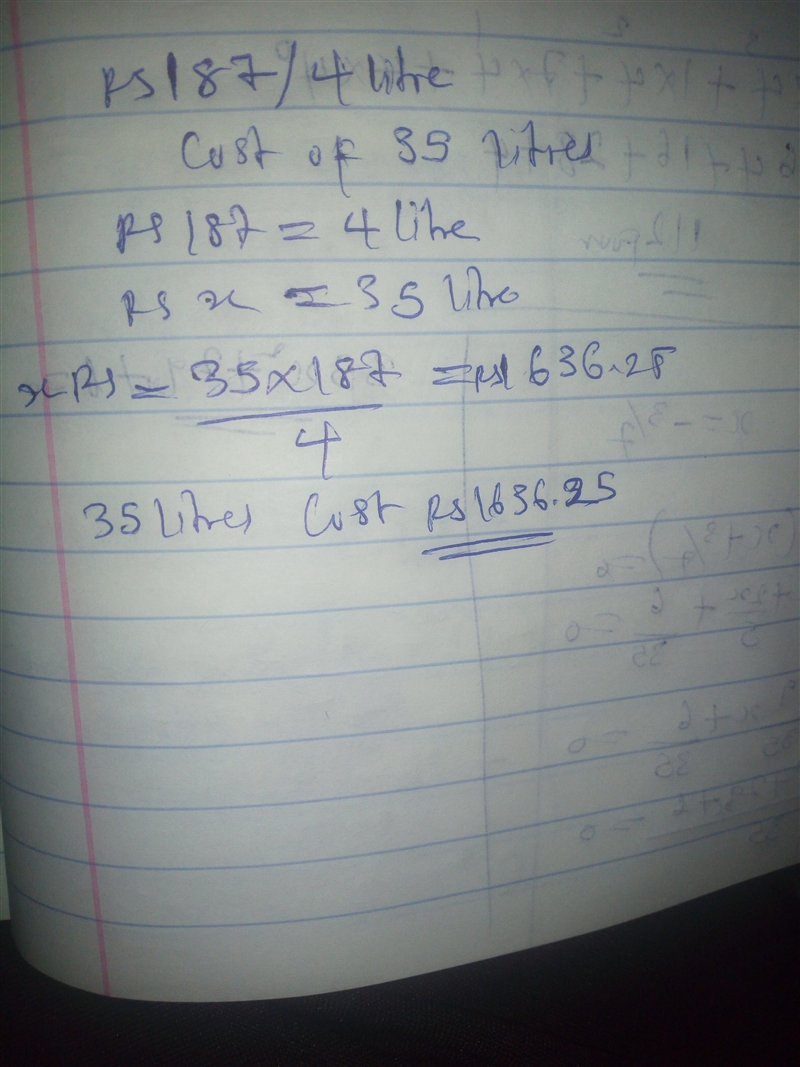 Rs 187/4 litre
Cost of 35 litres
Rs 187 = 4 litre
Rs x = 35 litre
x Rs = 35 x 187 = Rs 1636.25
4
35 litres Cost Rs 1636.25